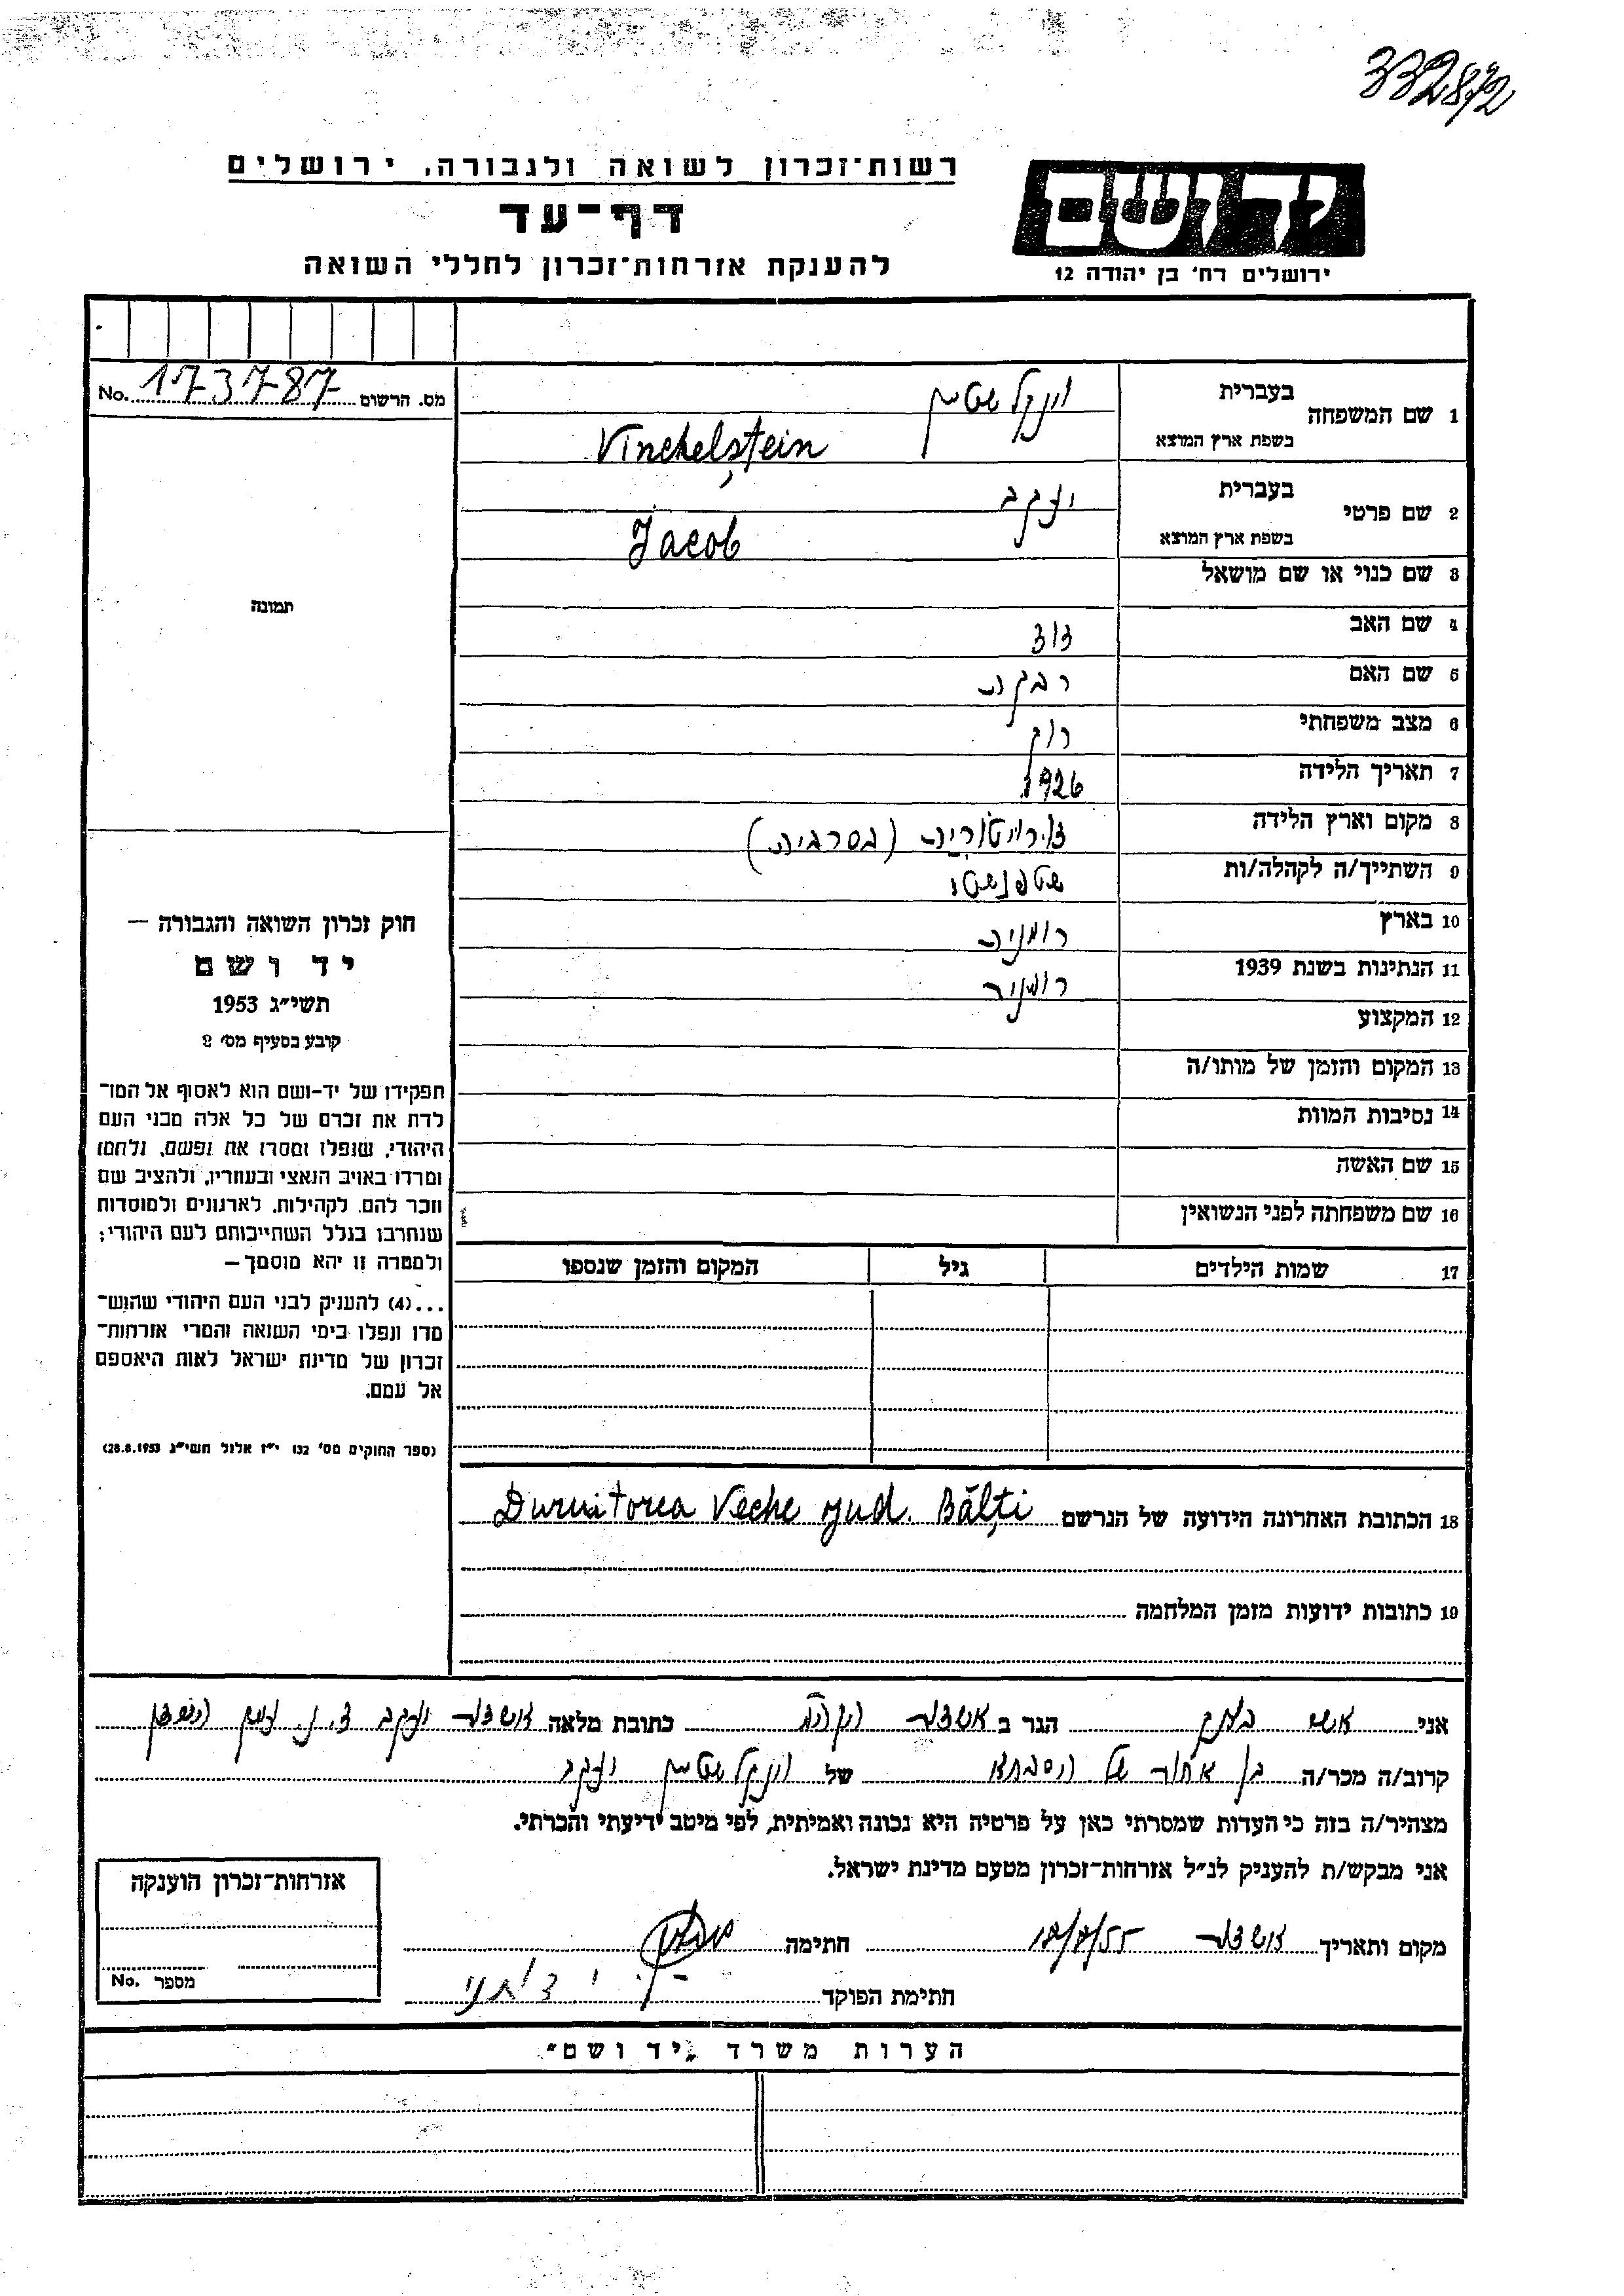 332872
רשות־זכרון לשואה ולגבורה, ירושלים
ידושם
דף־עד
להענקת אזרחות־זכרון לחללי השואה
ירושלים רח' בן יהודה 12
מס. הרשום 173787 No.
בעברית וינקלשטיין
1 שם המשפחה
בשפת ארץ המוצא Vinchelștein
בעברית יעקב
2 שם פרטי
בשפת ארץ המוצא Jacob
3 שם כנוי או שם מושאל
תמונה
4 שם האב דוד
5 שם האם רבקה
6 מצב משפחתי רוק
7 תאריך הלידה 1926
8 מקום וארץ הלידה (בסרביה)
9 השתייך/ה לקהלה/ות שטפנשטי
10 בארץ רומניה
11 הנתינות בשנת 1939 רומנית
12 המקצוע
13 המקום והזמן של מותו/ה
14 נסיבות המוות
15 שם האשה
16 שם משפחתה לפני הנשואין
17 שמות הילדים גיל המקום והזמן שנספו
חוק זכרון השואה והגבורה —
יד ושם
תשי״ג 1953
קובע בסעיף מס' 2
תפקידו של יד-ושם הוא לאסוף אל המו־
לדת את זכרם של כל אלה מבני העם
היהודי, שנפלו ומסרו את נפשם, נלחמו
ומרדו באויב הנאצי ובעוזריו, ולהציב שם
וזכר להם, לקהילות, לארגונים ולמוסדות
שנחרבו בגלל השתייכותם לעם היהודי;
ולמטרה זו יהא מוסמך —
...(4) להעניק לבני העם היהודי שהוש־
מדו ונפלו בימי השואה והמרי אזרחות־
זכרון של מדינת ישראל לאות היאספם
אל עמם.
(ספר החוקים מס' 132 י״ז אלול תשי״ג 28.8.1953)
18 הכתובת האחרונה הידועה של הנרשם Duruitorea Veche jud. Bălți
19 כתובות ידועות מזמן המלחמה
אני הגר ב אשדוד כתובת מלאה יעקב
קרוב/ה מכר/ה בן של וינקלשטיין יעקב
מצהיר/ה בזה כי העדות שמסרתי כאן על פרטיה היא נכונה ואמיתית, לפי מיטב ידיעתי והכרתי.
אני מבקש/ת להעניק לנ״ל אזרחות־זכרון מטעם מדינת ישראל.
מקום ותאריך חתימה
חתימת הפוקד
אזרחות־זכרון הוענקה
מספר No.
הערות משרד „יד ושם״